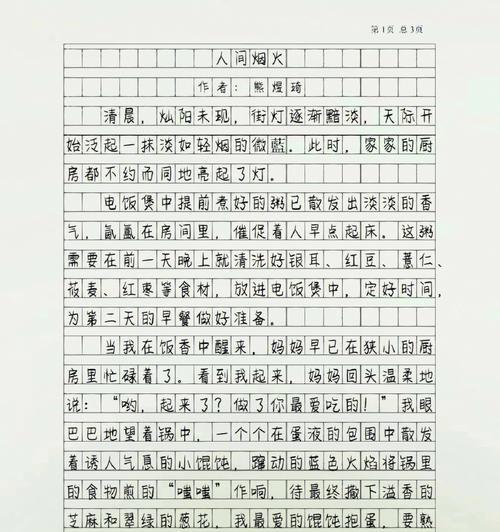 第1页 总3页
人间烟火
作者：熊煜琦
清晨，灿阳未现，街灯逐渐黯淡，天际开
始泛起一抹淡如轻烟的微蓝。此时，家家的厨
房都不约而同地亮起了灯。
电饭煲中提前煮好的粥已散发出淡淡的香
气，氤氲在房间里，催促着人早点起床。这粥
需要在前一天晚上就清洗好银耳、红豆、薏仁、
莜麦、红枣等食材，放进电饭煲中，定好时间，
为第二天的早餐做好准备。
当我在饭香中醒来，妈妈早已在狭小的厨
房里忙碌着了。看到我起来，妈妈回头温柔地
说：“哟，起来了？做了你最爱吃的！”我眼
巴巴地望着锅中，一个个在蛋液的包围中散发
着诱人气息的小馄饨，蹿动的蓝色火焰将锅里
的食物煎的“嗤嗤”作响，待最终撒下溢香的
芝麻和翠绿的葱花，我最爱的馄饨抱蛋，要熟